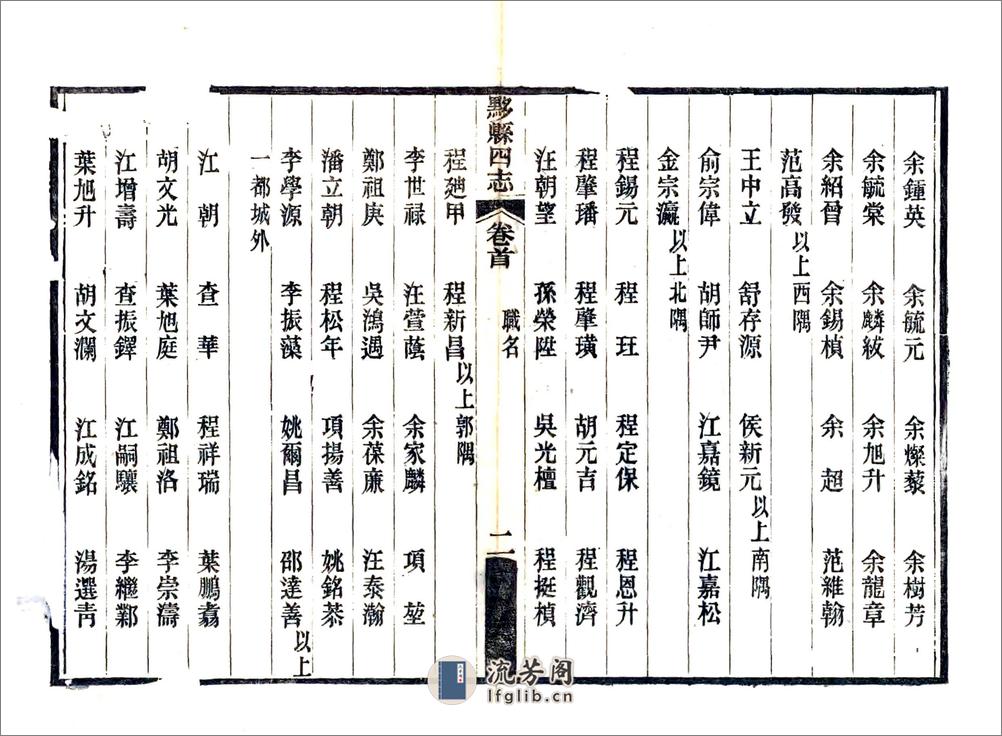 余鍾英 余毓元 余燦藜 余樹芳
余毓棠 余麟紱 余旭升 余龍章
余紹曾 余錫楨 余超 范維翰
范高發以上西隅
王中立 舒存源 侯新元以上南隅
俞宗偉 胡師尹 江嘉鏡 江嘉松
金宗瀛以上北隅
程錫元 程玨 程定保 程恩升
程肇璠 程肇璜 胡元吉 程觀濟
汪朝望 孫榮陞 吳光檀 程挺楨
黟縣四志 卷首 職名 二
程廼甲 程新昌以上郭隅
李世祿 汪萱蔭 余家麟 項堃
鄭祖庚 吳鴻遇 余葆廉 汪泰瀚
潘立朝 程松年 項揚善 姚銘恭
李學源 李振藻 姚爾昌 邵達善以上
一都城外
江朝 查華 程祥瑞 葉鵬翥
胡文光 葉旭庭 鄭祖洛 李崇濤
江增壽 查振鐸 江嗣驤 李繼鄴
葉旭升 胡文瀾 江成銘 湯選青
流芳阁
lfglib.cn